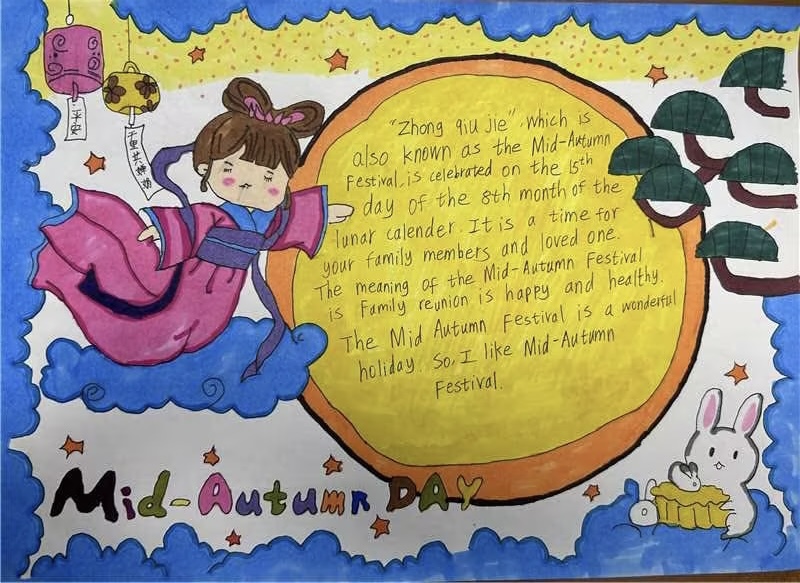 平安
千里共婵娟
"Zhong qiu Jie", which is
also known as the Mid-Autumn
Festival, is celebrated on the 15th
day of the 8th month of the
lunar calender. It is a time for
your family members and loved one.
The meaning of the Mid-Autumn Festival
is Family reunion is happy and healthy.
The Mid Autumn Festival is a wonderful
holiday. So, I like Mid-Autumn
Festival.
Mid-Autumn DAy